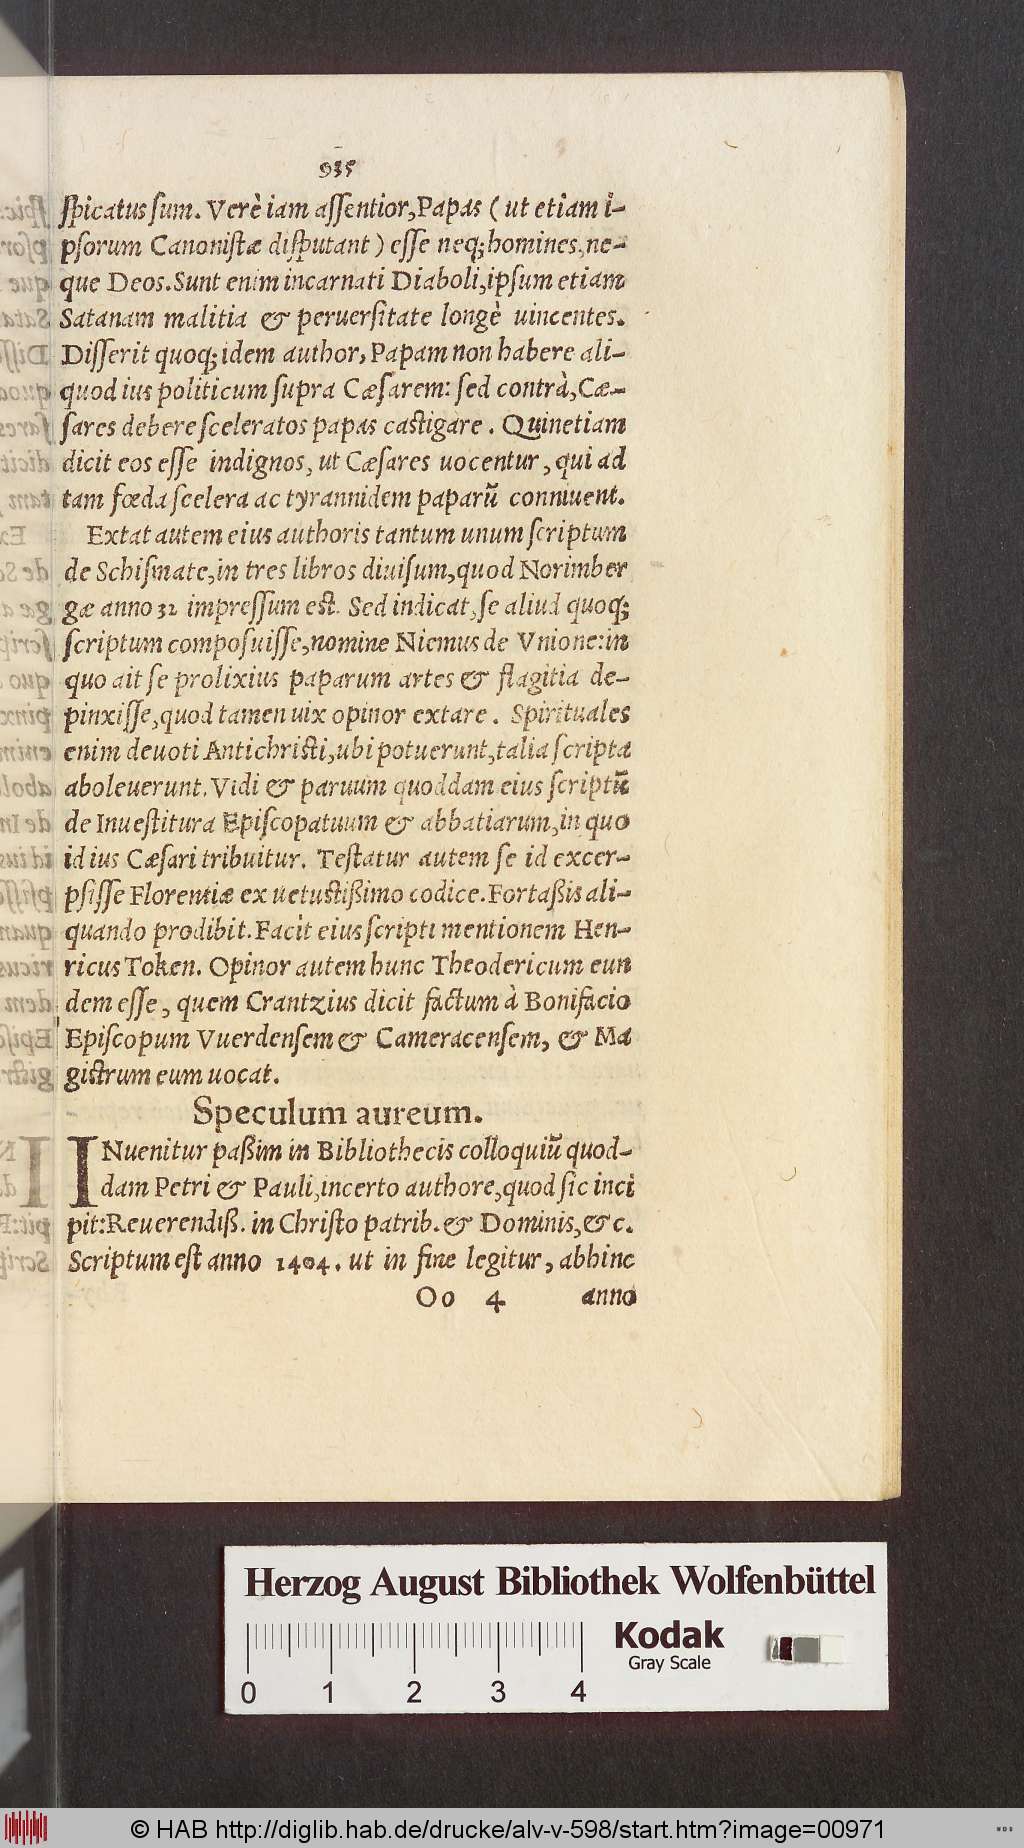 935
ſpicatus ſum. Verè iam aſſentior, Papas (ut etiam i-
pſorum Canoniſtæ diſputant) eſſe neq; homines, ne-
que Deos. Sunt enim incarnati Diaboli, ipſum etiam
Satanam malitia & peruerſitate longè uincentes.
Diſſerit quoq; idem author, Papam non habere ali-
quod ius politicum ſupra Cæſarem: ſed contrà, Cæ-
ſares debere ſceleratos papas caſtigare. Quinetiam
dicit eos eſſe indignos, ut Cæſares uocentur, qui ad
tam fœda ſcelera ac tyrannidem paparũ conniuent.
Extat autem eius authoris tantum unum ſcriptum
de Schiſmate, in tres libros diuiſum, quod Norimber
gæ anno 32 impreſſum eſt. Sed indicat, ſe aliud quoq;
ſcriptum compoſuiſſe, nomine Niemus de Vnione: in
quo ait ſe prolixius paparum artes & flagitia de-
pinxiſſe, quod tamen uix opinor extare. Spirituales
enim deuoti Antichriſti, ubi potuerunt, talia ſcripta
aboleuerunt. Vidi & paruum quoddam eius ſcriptũ
de Inueſtitura Epiſcopatuum & abbatiarum, in quo
id ius Cæſari tribuitur. Teſtatur autem ſe id excer-
pſiſſe Florentiæ ex uetuſtißimo codice. Fortaßis ali-
quando prodibit. Facit eius ſcripti mentionem Hen-
ricus Token. Opinor autem hunc Theodericum eun
dem eſſe, quem Crantzius dicit factum à Bonifacio
Epiſcopum Vuerdenſem & Cameracenſem, & Ma
giſtrum eum uocat.
Speculum aureum.
INuenitur paßim in Bibliothecis colloquiũ quod-
dam Petri & Pauli, incerto authore, quod ſic inci
pit: Reuerendiß. in Chriſto patrib. & Dominis, &c.
Scriptum eſt anno 1404. ut in fine legitur, abhinc
Oo 4 anno
Herzog August Bibliothek Wolfenbüttel
Kodak
Gray Scale
0 1 2 3 4
© HAB http://diglib.hab.de/drucke/alv-v-598/start.htm?image=00971